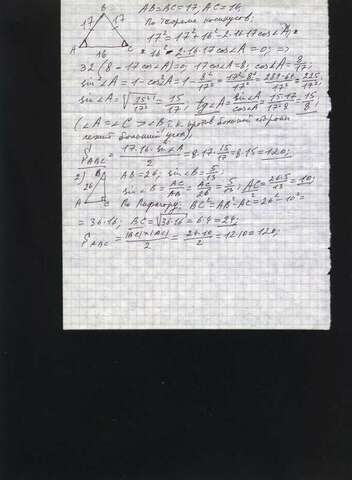 B
17 17
A 16 C
AB=BC=17, AC=16,
По теореме косинусов:
17²=17²+16²-2·16·17cos∠A;
16²-2·16·17cos∠A=0; =>
32(8-17cos∠A)=0; 17cos∠A=8; cos∠A=8/17;
sin²∠A=1-cos²∠A=1-8²/17²=(17²-8²)/17²=(289-64)/17²=225/17²;
sin∠A=√(15²/17²)=15/17; tg∠A=sin∠A/cos∠A=15·17/17·8=15/8;
(∠A=∠C=>∠B, т.к. против большей стороны
лежит больший угол);
S ABC=17·16·sin∠A/2=8·17·15/17=8·15=120;
2) B
26
A C
AB=26; sin∠B=5/13
sin∠B=AC/AB=AC/26=5/13; AC=26·5/13=10;
По Пифагору: BC²=AB²-AC²=26²-10²=
=36·16; BC=√36·16=6·4=24;
S ABC=|BC|×|AC|/2=24·10/2=12·10=120;